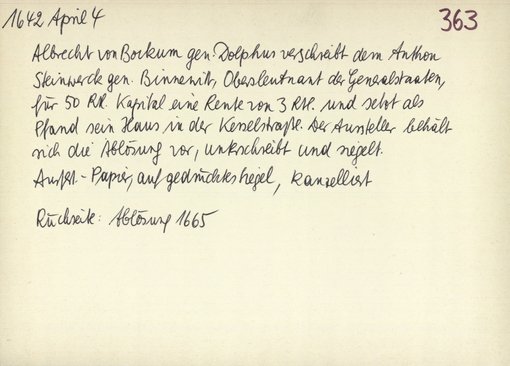 1642 April 4
363
Albrecht von Bockum gen. Dolphus verschreibt dem Anthon
Steinwerck gen. Oberstleutnant der Generalstaaten,
für 50 Rtl. Kapital eine Rente von 3 Rtl. und setzt als
Pfand sein Haus in der Kesselstraße. Der Aussteller behält
sich die Ablösung vor, unterschreibt und siegelt.
Ausf. - Papier, aufgedrücktes Siegel, kanzelliert
Rückseite: Ablösung 1665